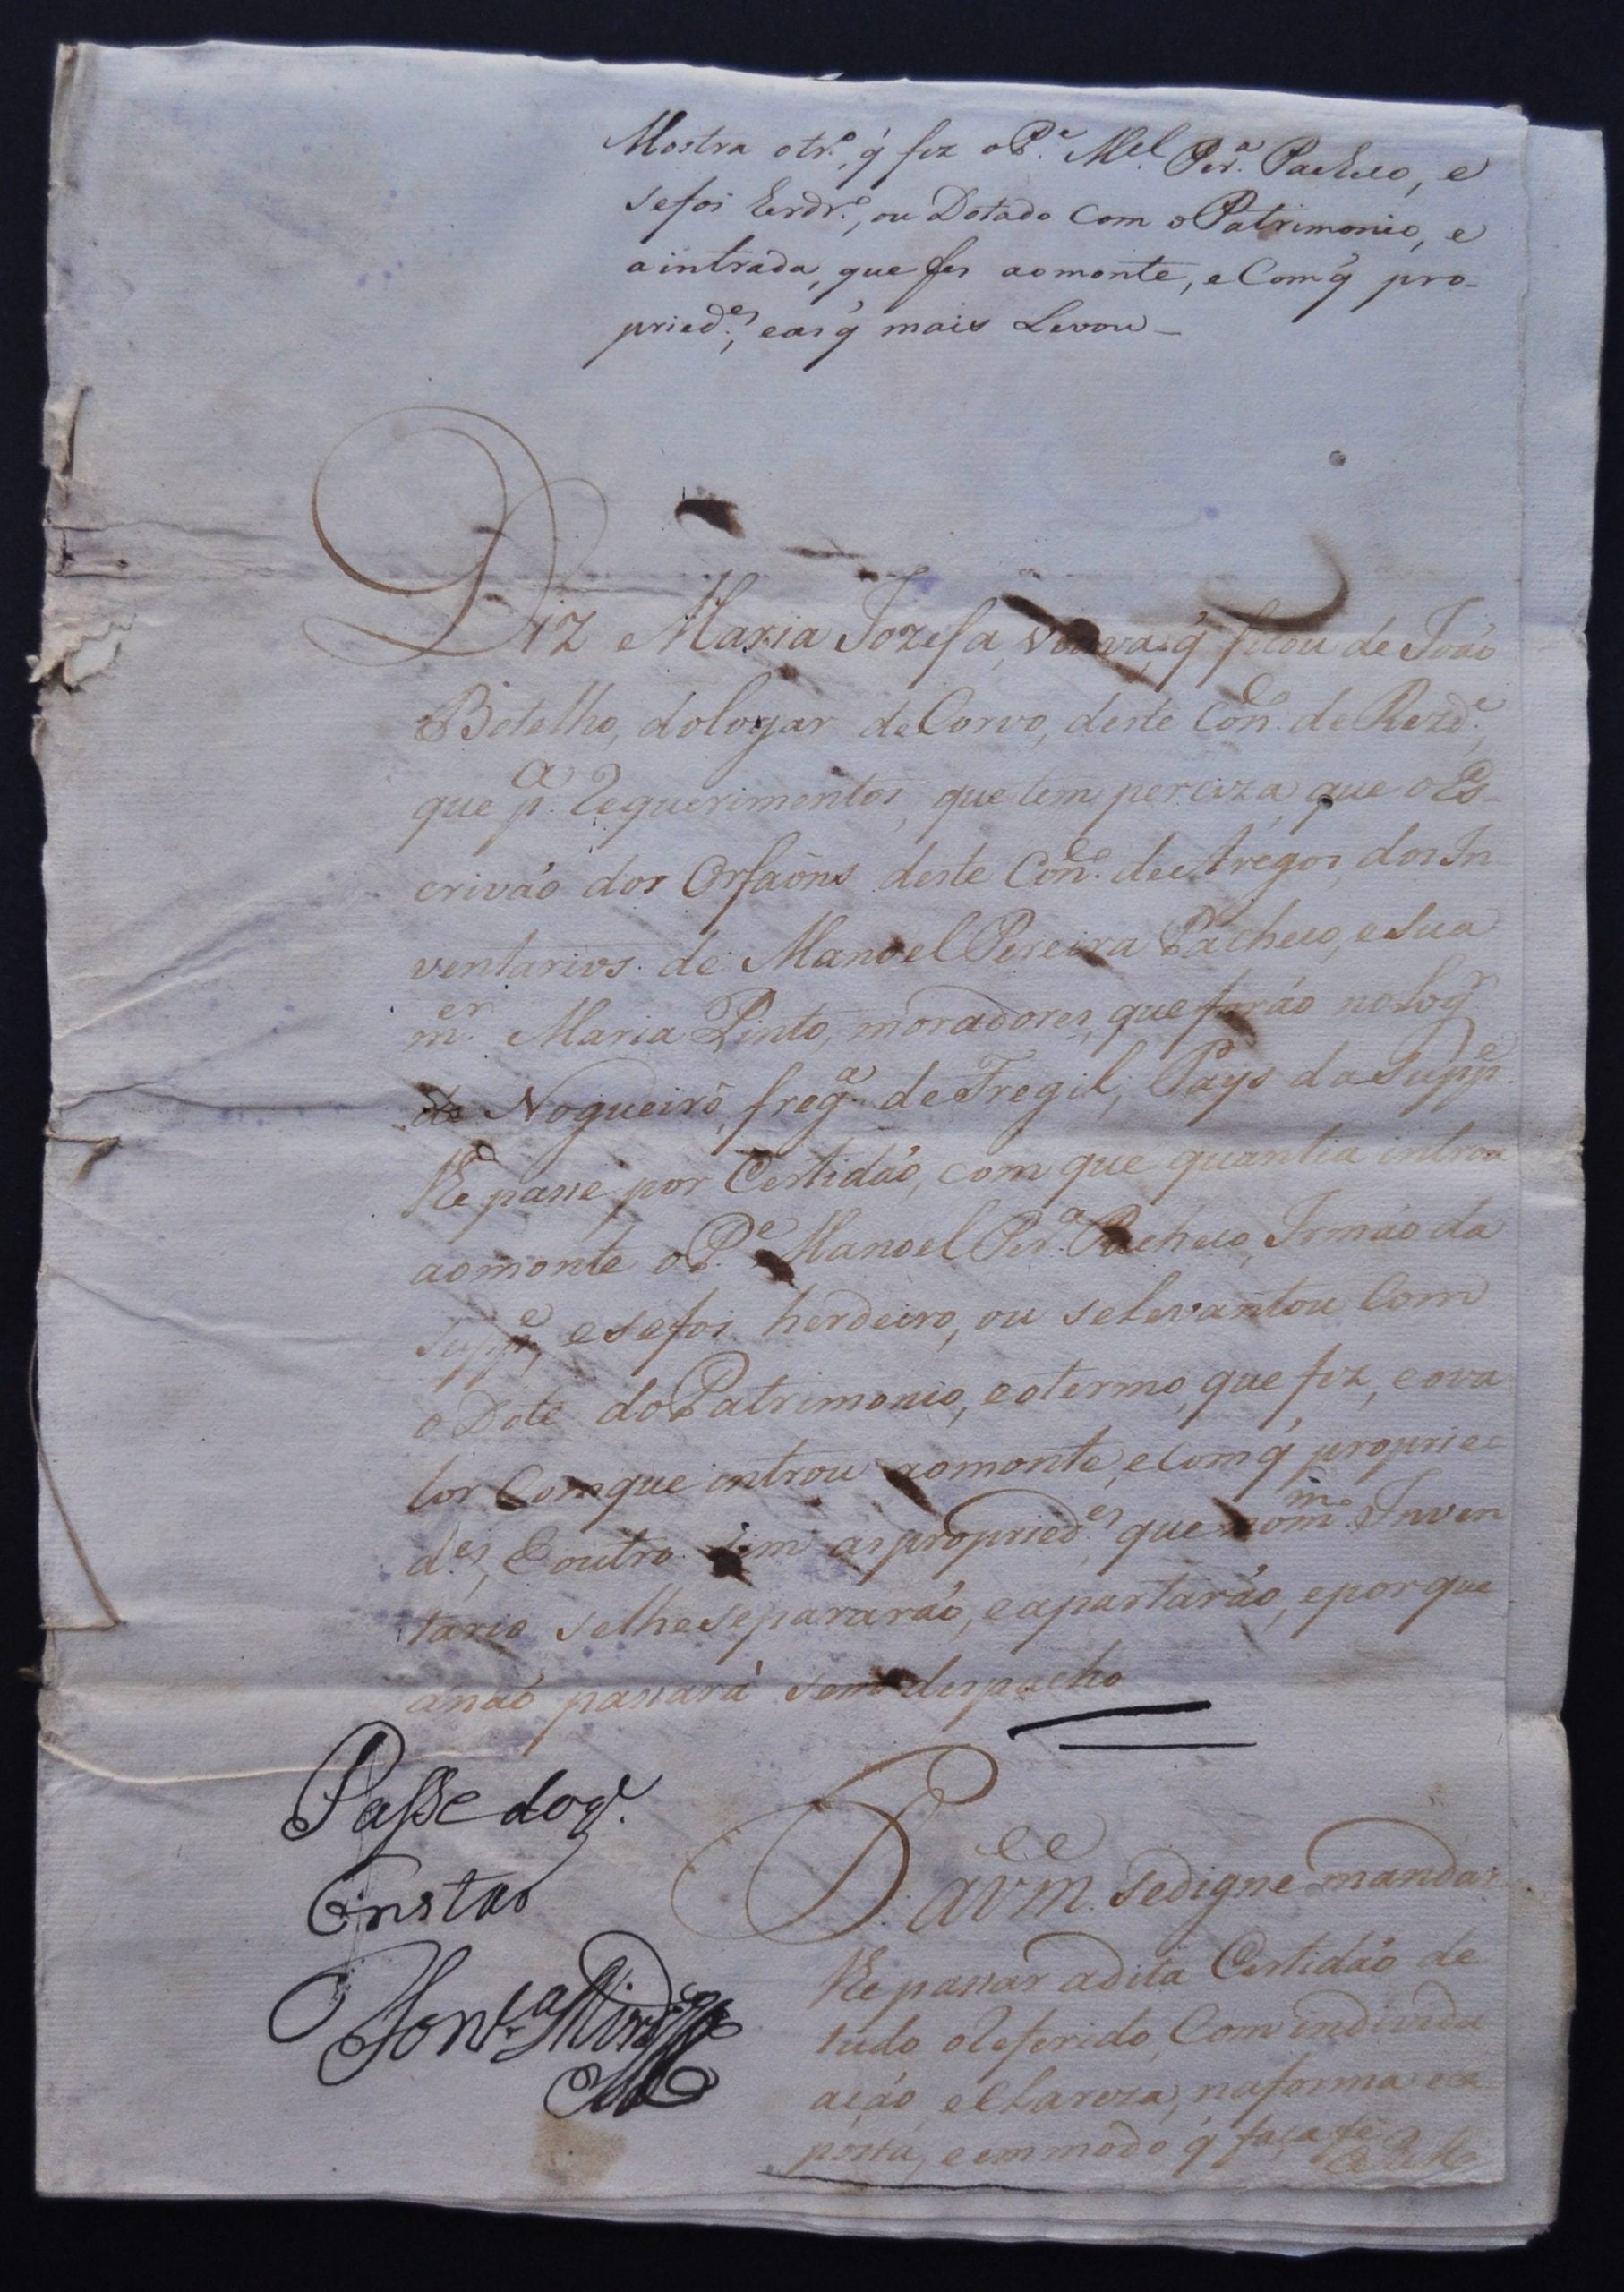 Mostra o tr.º, q̃ fez o P.e M.el Per.a Pacheco, e
se foi Erdr.º, ou Dotado Com o Patrimonio, e
a intrada, que fes ao monte, e Com q̃ pro-
pried.es, e as q̃ mais Levou_
Diz Maria Jozefa, viuva, q̃ ficou de João
Botelho, do logar de Corvo, deste Con.º de Rezd.e,
que p.a Requerimentos, que tem perciza, que o Es-
crivão dos Orfaõns deste Con.º de Aregos, dos In
ventarios de Manoel Pereira Pacheco, e Sua
m.er Maria Pinto, moradores, que forão no Log.r
de Nogueirô, freg.a de Fregil, Pays da Supp.e
lhe passe por Certidão, com que quantia introu
ao monte o P.e Manoel Per.a Pacheco, Irmão da
supp.e, e se foi herdeiro, ou se levantou Com
o Dote do Patrimonio, e o termo, que fez, e o va
lor Com que introu ao monte, e Com q̃ proprie-
d.es, E outro sim as propried.es, que no m.mo Inven
tario se lhe separarão, e apartarão, e porque
a naõ passará sem despacho
Passe do q.
Constar
P. a V.m.ce se digne mandar
lhe passar a dita Certidão de
tudo o Referido, Com individu
ação, e Clareza, na forma ex
posta, e em modo q̃ faça fe
E R M.ce